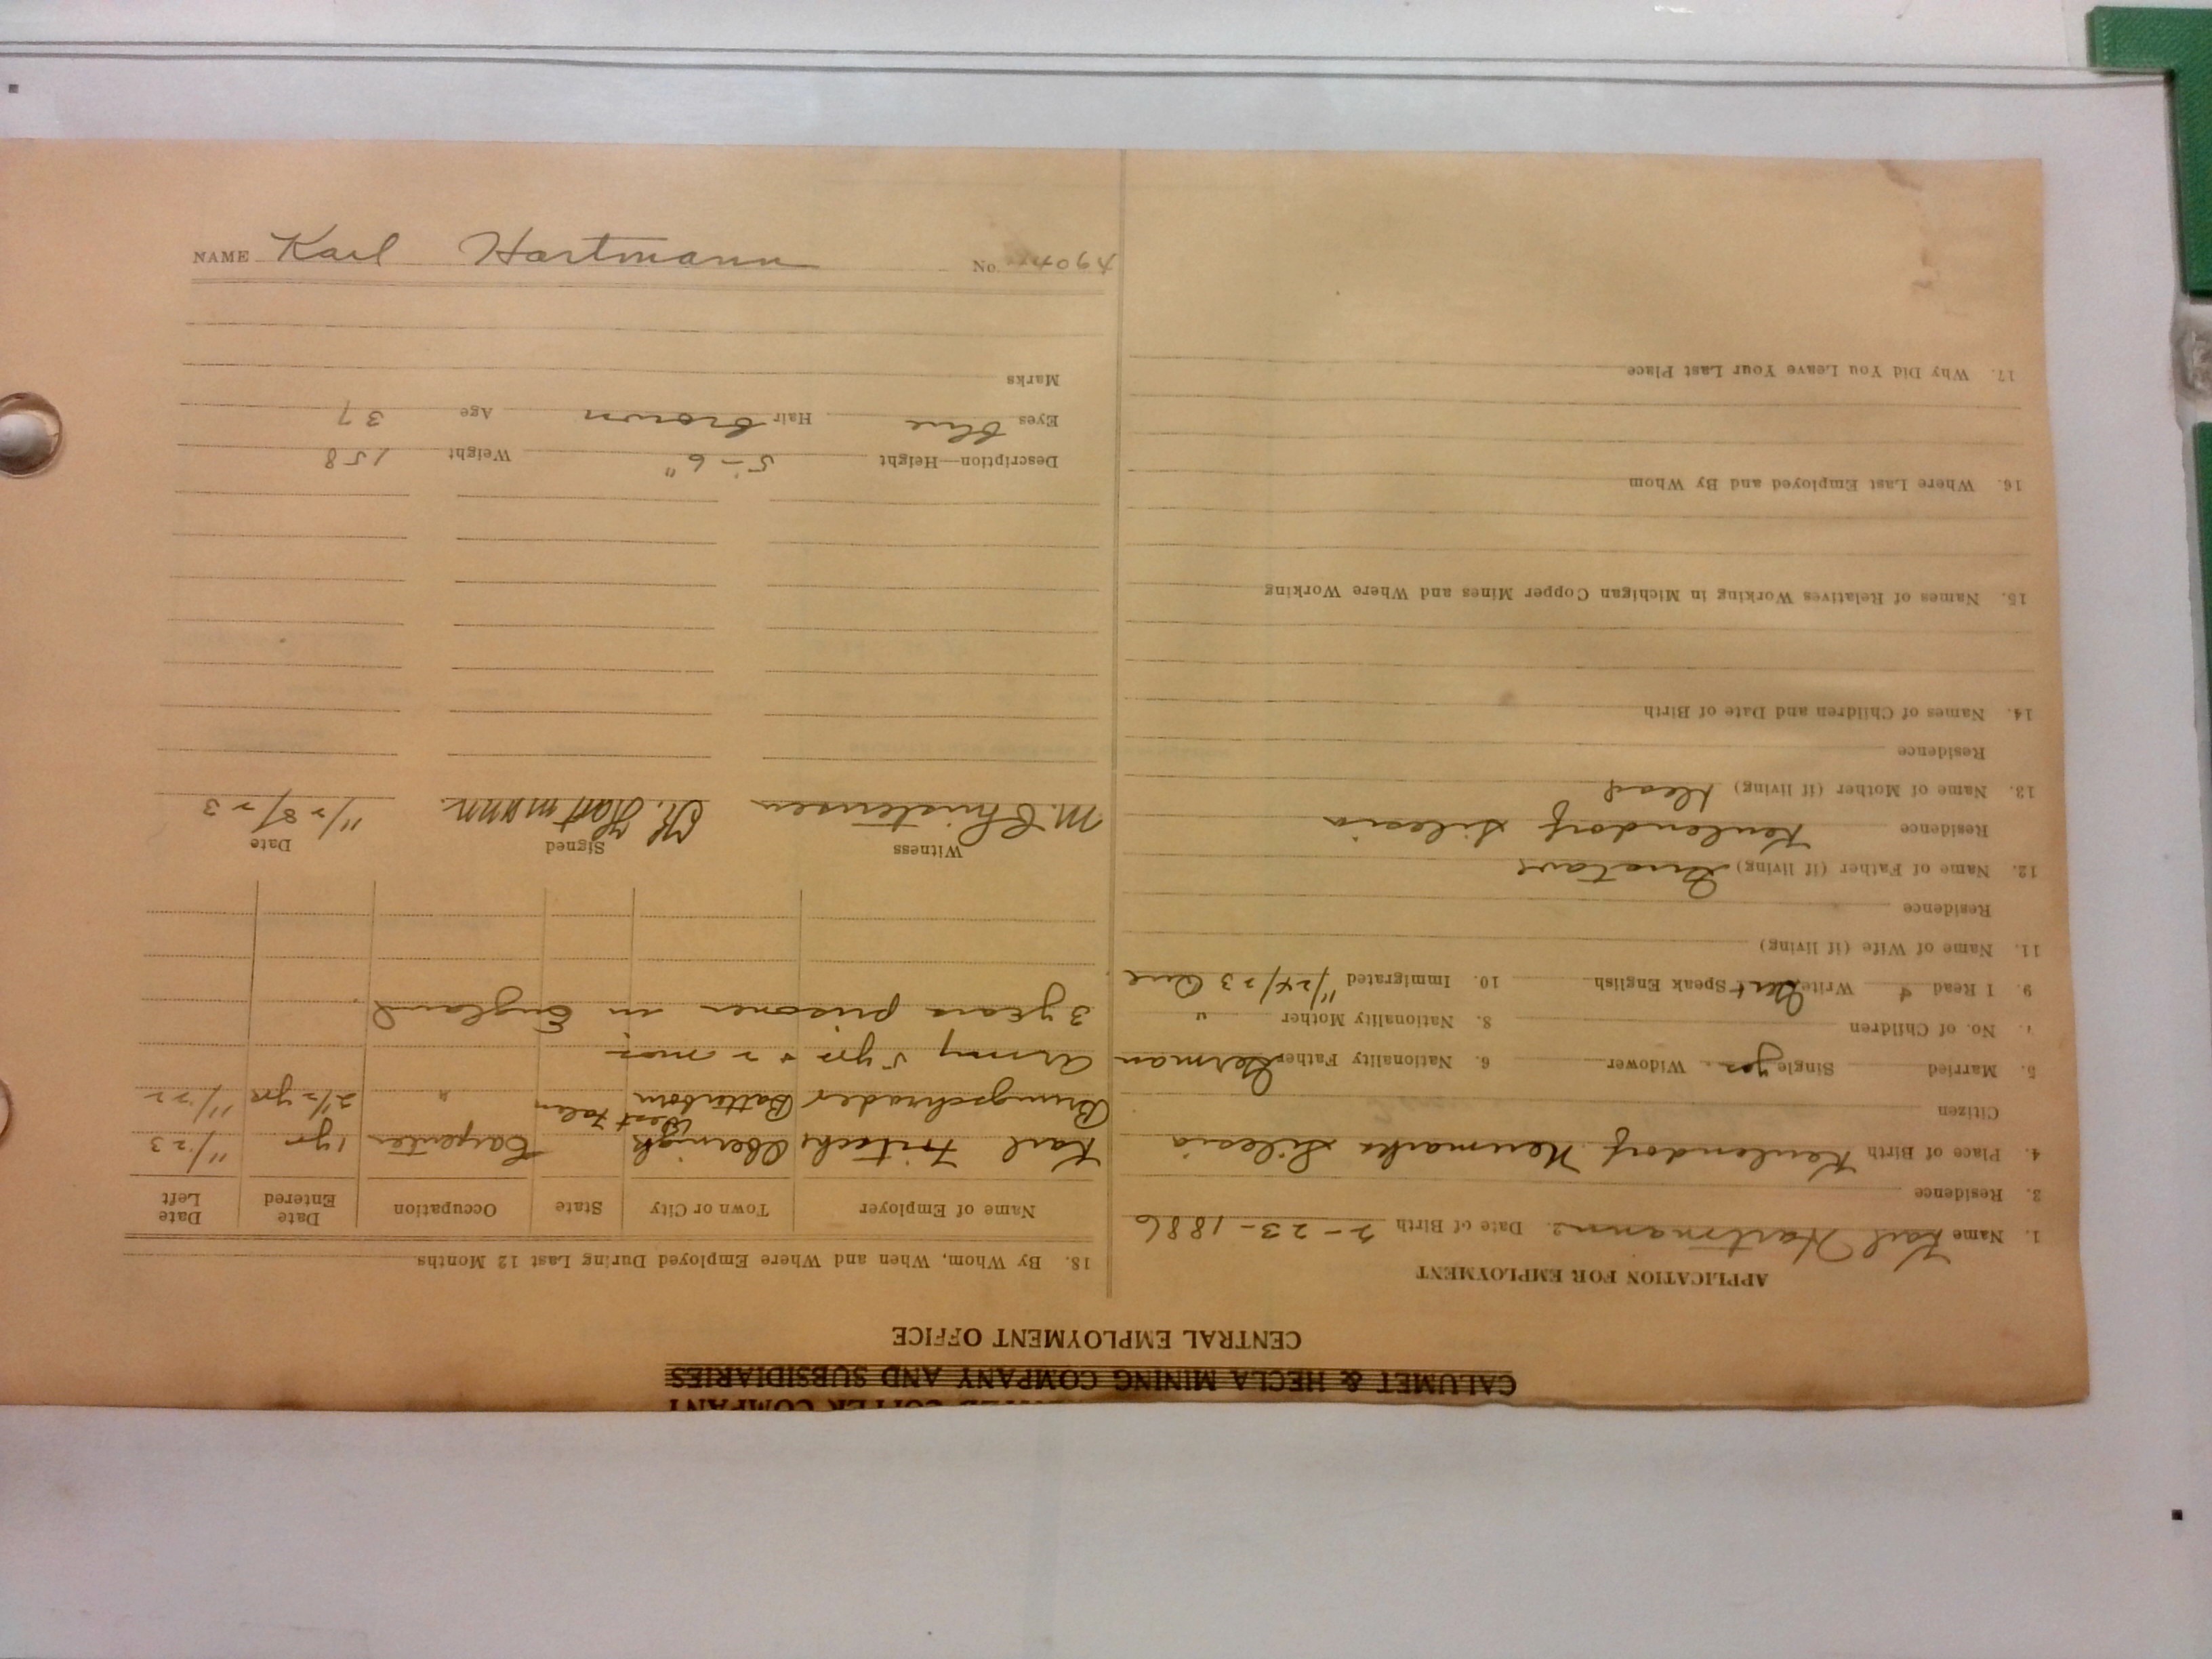 CALUMET & HECLA MINING COMPANY AND SUBSIDIARIES
CENTRAL EMPLOYMENT OFFICE
APPLICATION FOR EMPLOYMENT
1. Name Karl Hartmann 2. Date of Birth 2-23-1886
3. Residence
4. Place of Birth Keulendorf Neumarks Silesia
Citizen
5. Married Single yes Widower 6. Nationality Father German
7. No. of Children 8. Nationality Mother "
9. I Read Write Speak English 10. Immigrated 11/24/23
11. Name of Wife (if living)
Residence
12. Name of Father (if living) Gustave
Residence Keulendorf Silesia
13. Name of Mother (if living) dead
Residence
14. Names of Children and Date of Birth
15. Names of Relatives Working in Michigan Copper Mines and Where Working
16. Where Last Employed and By Whom
17. Why Did You Leave Your Last Place
18. By Whom, When and Where Employed During Last 12 Months
Name of Employer Town or City State Occupation Date Entered Date Left
Karl Fritsch Obernigk Carpenter 1 yr 11/23
West falen
Brungschrader Batterborn " 2 1/2 yrs 11/22
Army 5 yrs + 2 mos
3 years prisoner in England
Witness Signed Date
M. Christensen K. Hartmann. 11/28/23
Description—Height 5-6" Weight 158
Eyes blue Hair brown Age 37
Marks
NAME Karl Hartmann No.